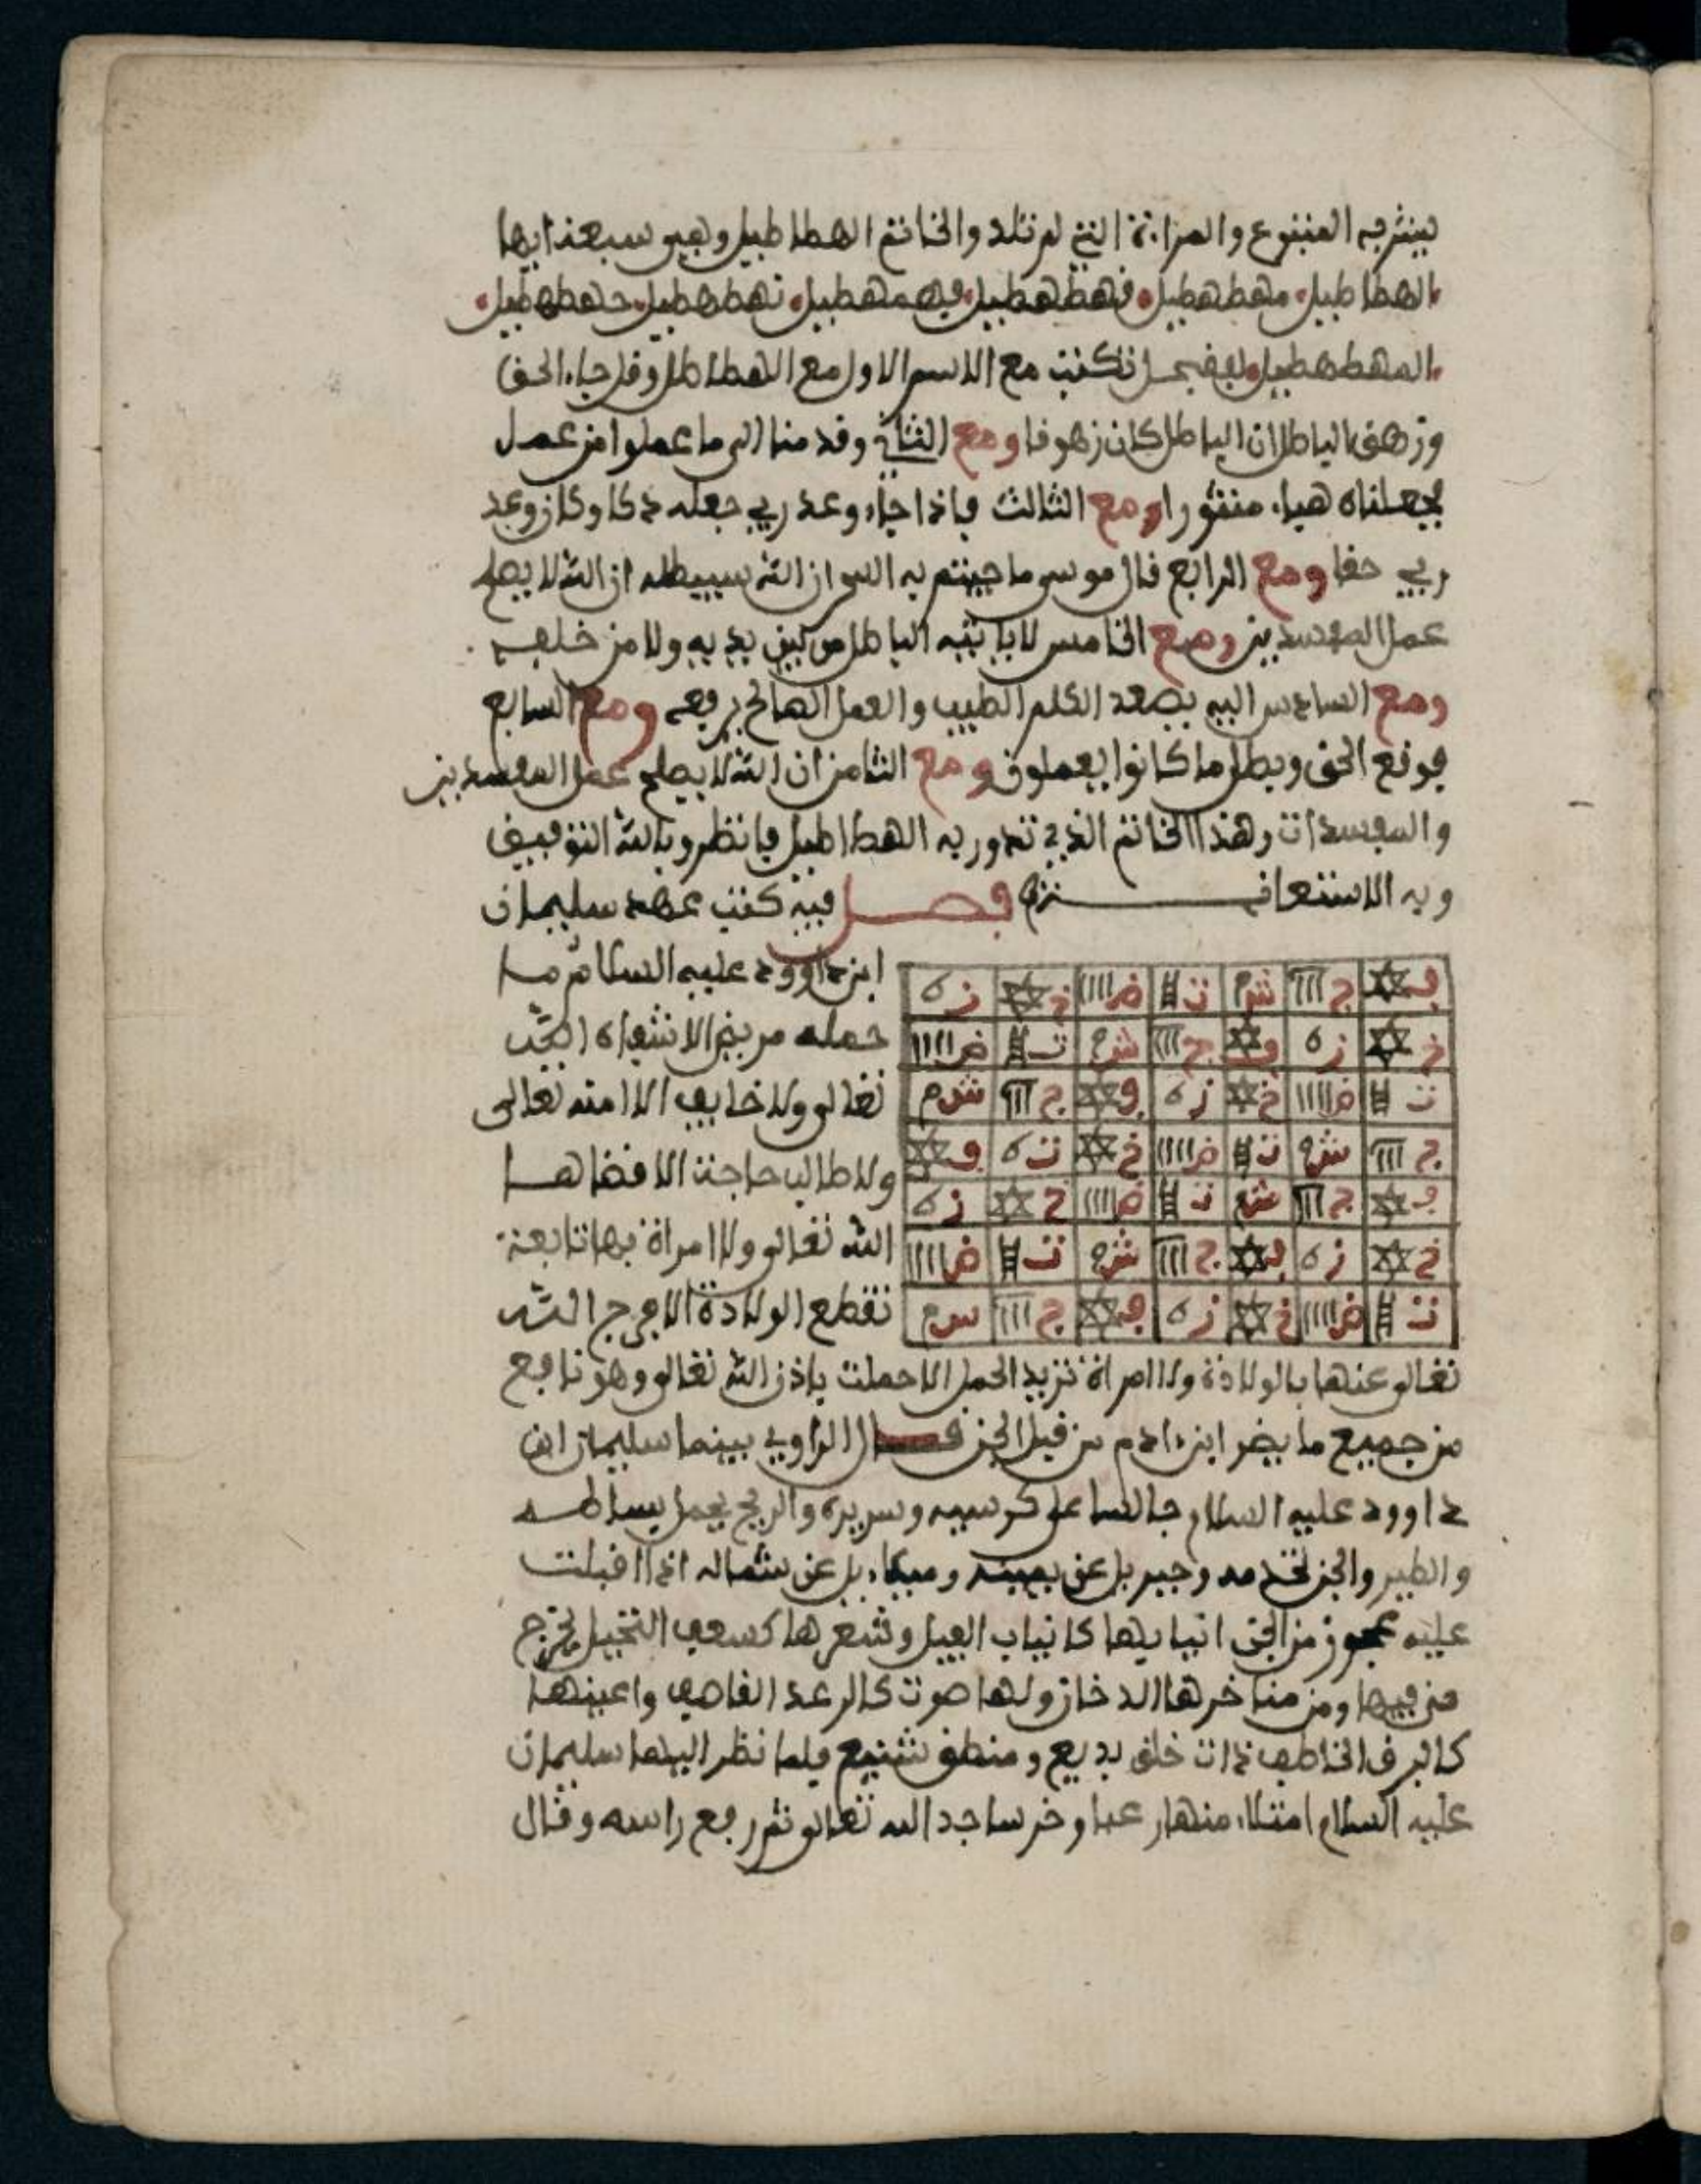 يشربه الممنوع والمراة التي لم تلد والخاتم الهطاطيل وهي سبعة ايها
الهطاطيل مهطهطيل فهطهطيل فهمهطيل نهطهطيل جهطهطيل
المهطهطيل تكتب مع الاسم الاول مع الهطاطل وقل جاء الحق
وزهق الباطل ان الباطل كان زهوقا ومع الثاني وقدمنا الى ما عملوا من عمل
فجعلناه هباء منثورا ومع الثالث فاذا جاء وعد ربي جعله دكا وكان وعد
ربي حقا ومع الرابع قال موسى ما جيتم به السحر ان الله سيبطله ان الله لا يصلح
عمل المفسدين ومع الخامس لا ياتيه الباطل من بين يديه ولا من خلفه
ومع السادس اليه يصعد الكلم الطيب والعمل الصالح يرفعه ومع السابع
فوقع الحق وبطل ما كانوا يعملون ومع الثامن ان الله لا يصلح عمل المفسدين
والمفسدات وهذا الخاتم الذي تدور به الهطاطيل فانظر وبالله التوفيق
وبه الاستعانة فصل فيه كتب عهد سليمان
ابن داوود عليه السلام ما
حمله مريض الا شفاه الله
تعالى ولا خايف الا امنه تعالى
ولا طالب حاجة الا قضاها
الله تعالى ولا امراة بها تابعة
تقطع الولادة الا فرج الله
ف ج ااا ش م ت ض اااا خ ز ه
خ ز ه ف ج ااا ش م ت ض اااا
ت ض اااا خ ز ه ف ج ااا ش م
ج ااا ش م ت ض اااا خ ت ه ف
ف ج ااا ش م ت ض اااا خ ز ه
خ ز ه ف ج ااا ش م ت ض اااا
ت ض اااا خ ز ه ف ج ااا س م
تعالى عنها بالولادة ولا امراة تريد الحمل الا حملت باذن الله تعالى وهو نافع
من جميع ما يضر ابن ءادم من قبل الجن قال الراوي بينما سليمان ابن
داوود عليه السلام جالسا على كرسيه وسريره والريح يحمل بساطه
والطير والجن تخدمه وجبريل عن يمينه وميكاءيل عن شماله اذا اقبلت
عليه عجوز من الجن انيابها كانياب الفيل وشعرها كسعف النخيل يخرج
من فيها ومن مناخرها الدخان ولها صوت كالرعد القاصف واعينها
كالبرق الخاطف ذات خلق بديع ومنطق شنيع فلما نظر اليها سليمان
عليه السلام امتلاء منها رعبا وخر ساجدا لله تعالى ثم رفع راسه وقال